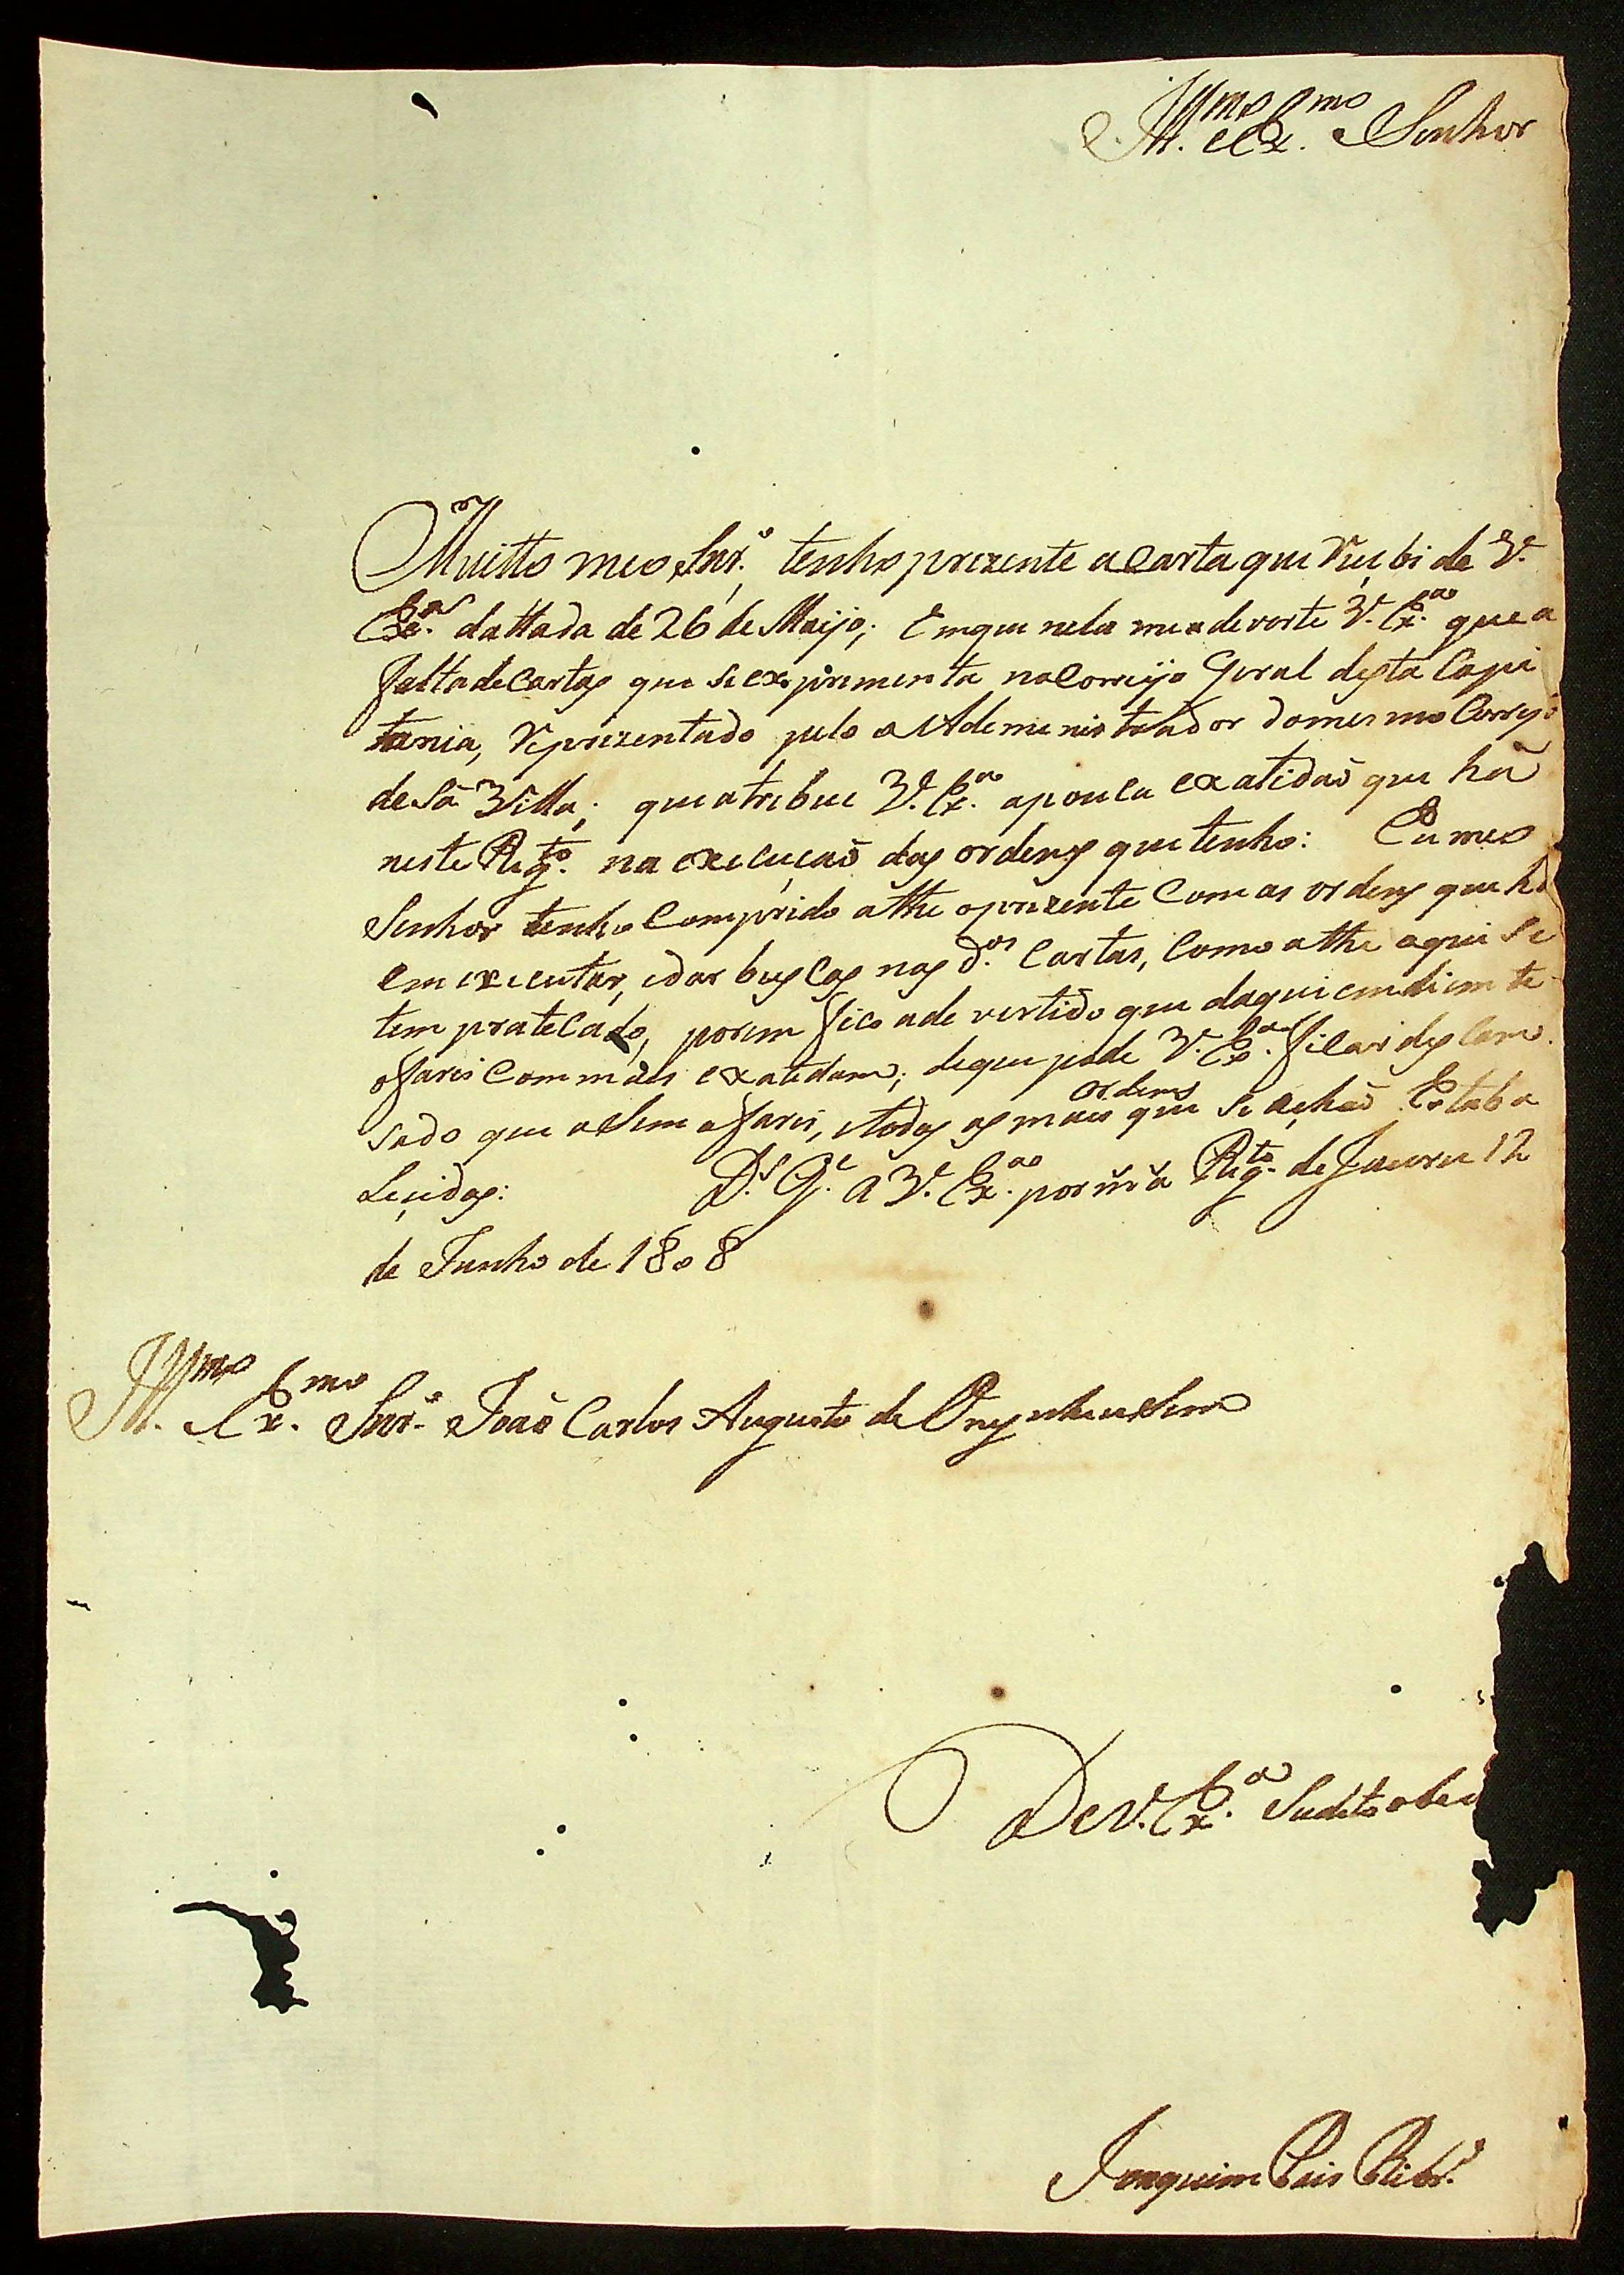 Ill.mo e Ex.mo Senhor
Muitto meo Snr.e tenho prezente a Carta que Reçebi de V.
Ex.a dattada de 26 de Maijo; Emque nela me adevorte V. Ex.a que a
falta de Cartas que se expirimenta no Correijo Geral desta Capi
tania, Reprizentado pelo Ademenistrador domesmo Correyo
de sã Villa; que atribue V. Ex.a apouca exatidaõ que hã
neste Reg.to na execuçaõ das ordens que tenho: Eu meo
Senhor tenho Comprido athe oprezente Com as ordens que hã
em executar, edar buscas nas d.as Cartas, Como athe aqui se
tem pratecado, porem fico adevertido que daqui emdiemte
ofarei Com mais exatidam; deque pode V. Ex.a ficar descam
sado que asim ofarei, etodas as mais ordens que se achaõ Estaba
Leçidas: D.s G.e a V. Ex.a por m.s a Reg.to de Jauru 12
de Junho de 1808
Ill.mo e Ex.mo Snr.e Joaõ Carlos Augusto de Oeynhausem
De V. Ex.a Sudito obed
Joaquim Luis Ribr.o